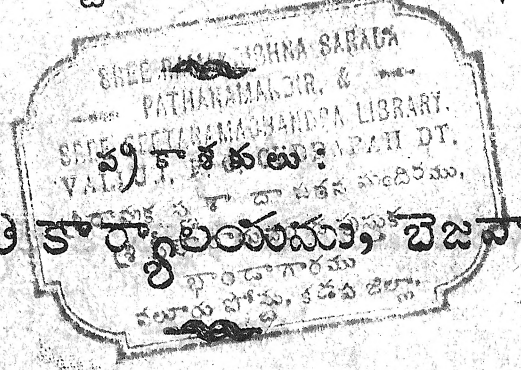 SREE RAMAKRISHNA SARADA
PATHANAMANDIR, &
SREE SEETHARAMACHANDRA LIBRARY.
ప్రకాశకులు :
VALLUR, CUDDAPAH DT.
శారదా పఠన మందిరము,
కార్యాలయము, బెజవా
భాండాగారము
వల్లూరు పోస్టు, కడప జిల్లా.